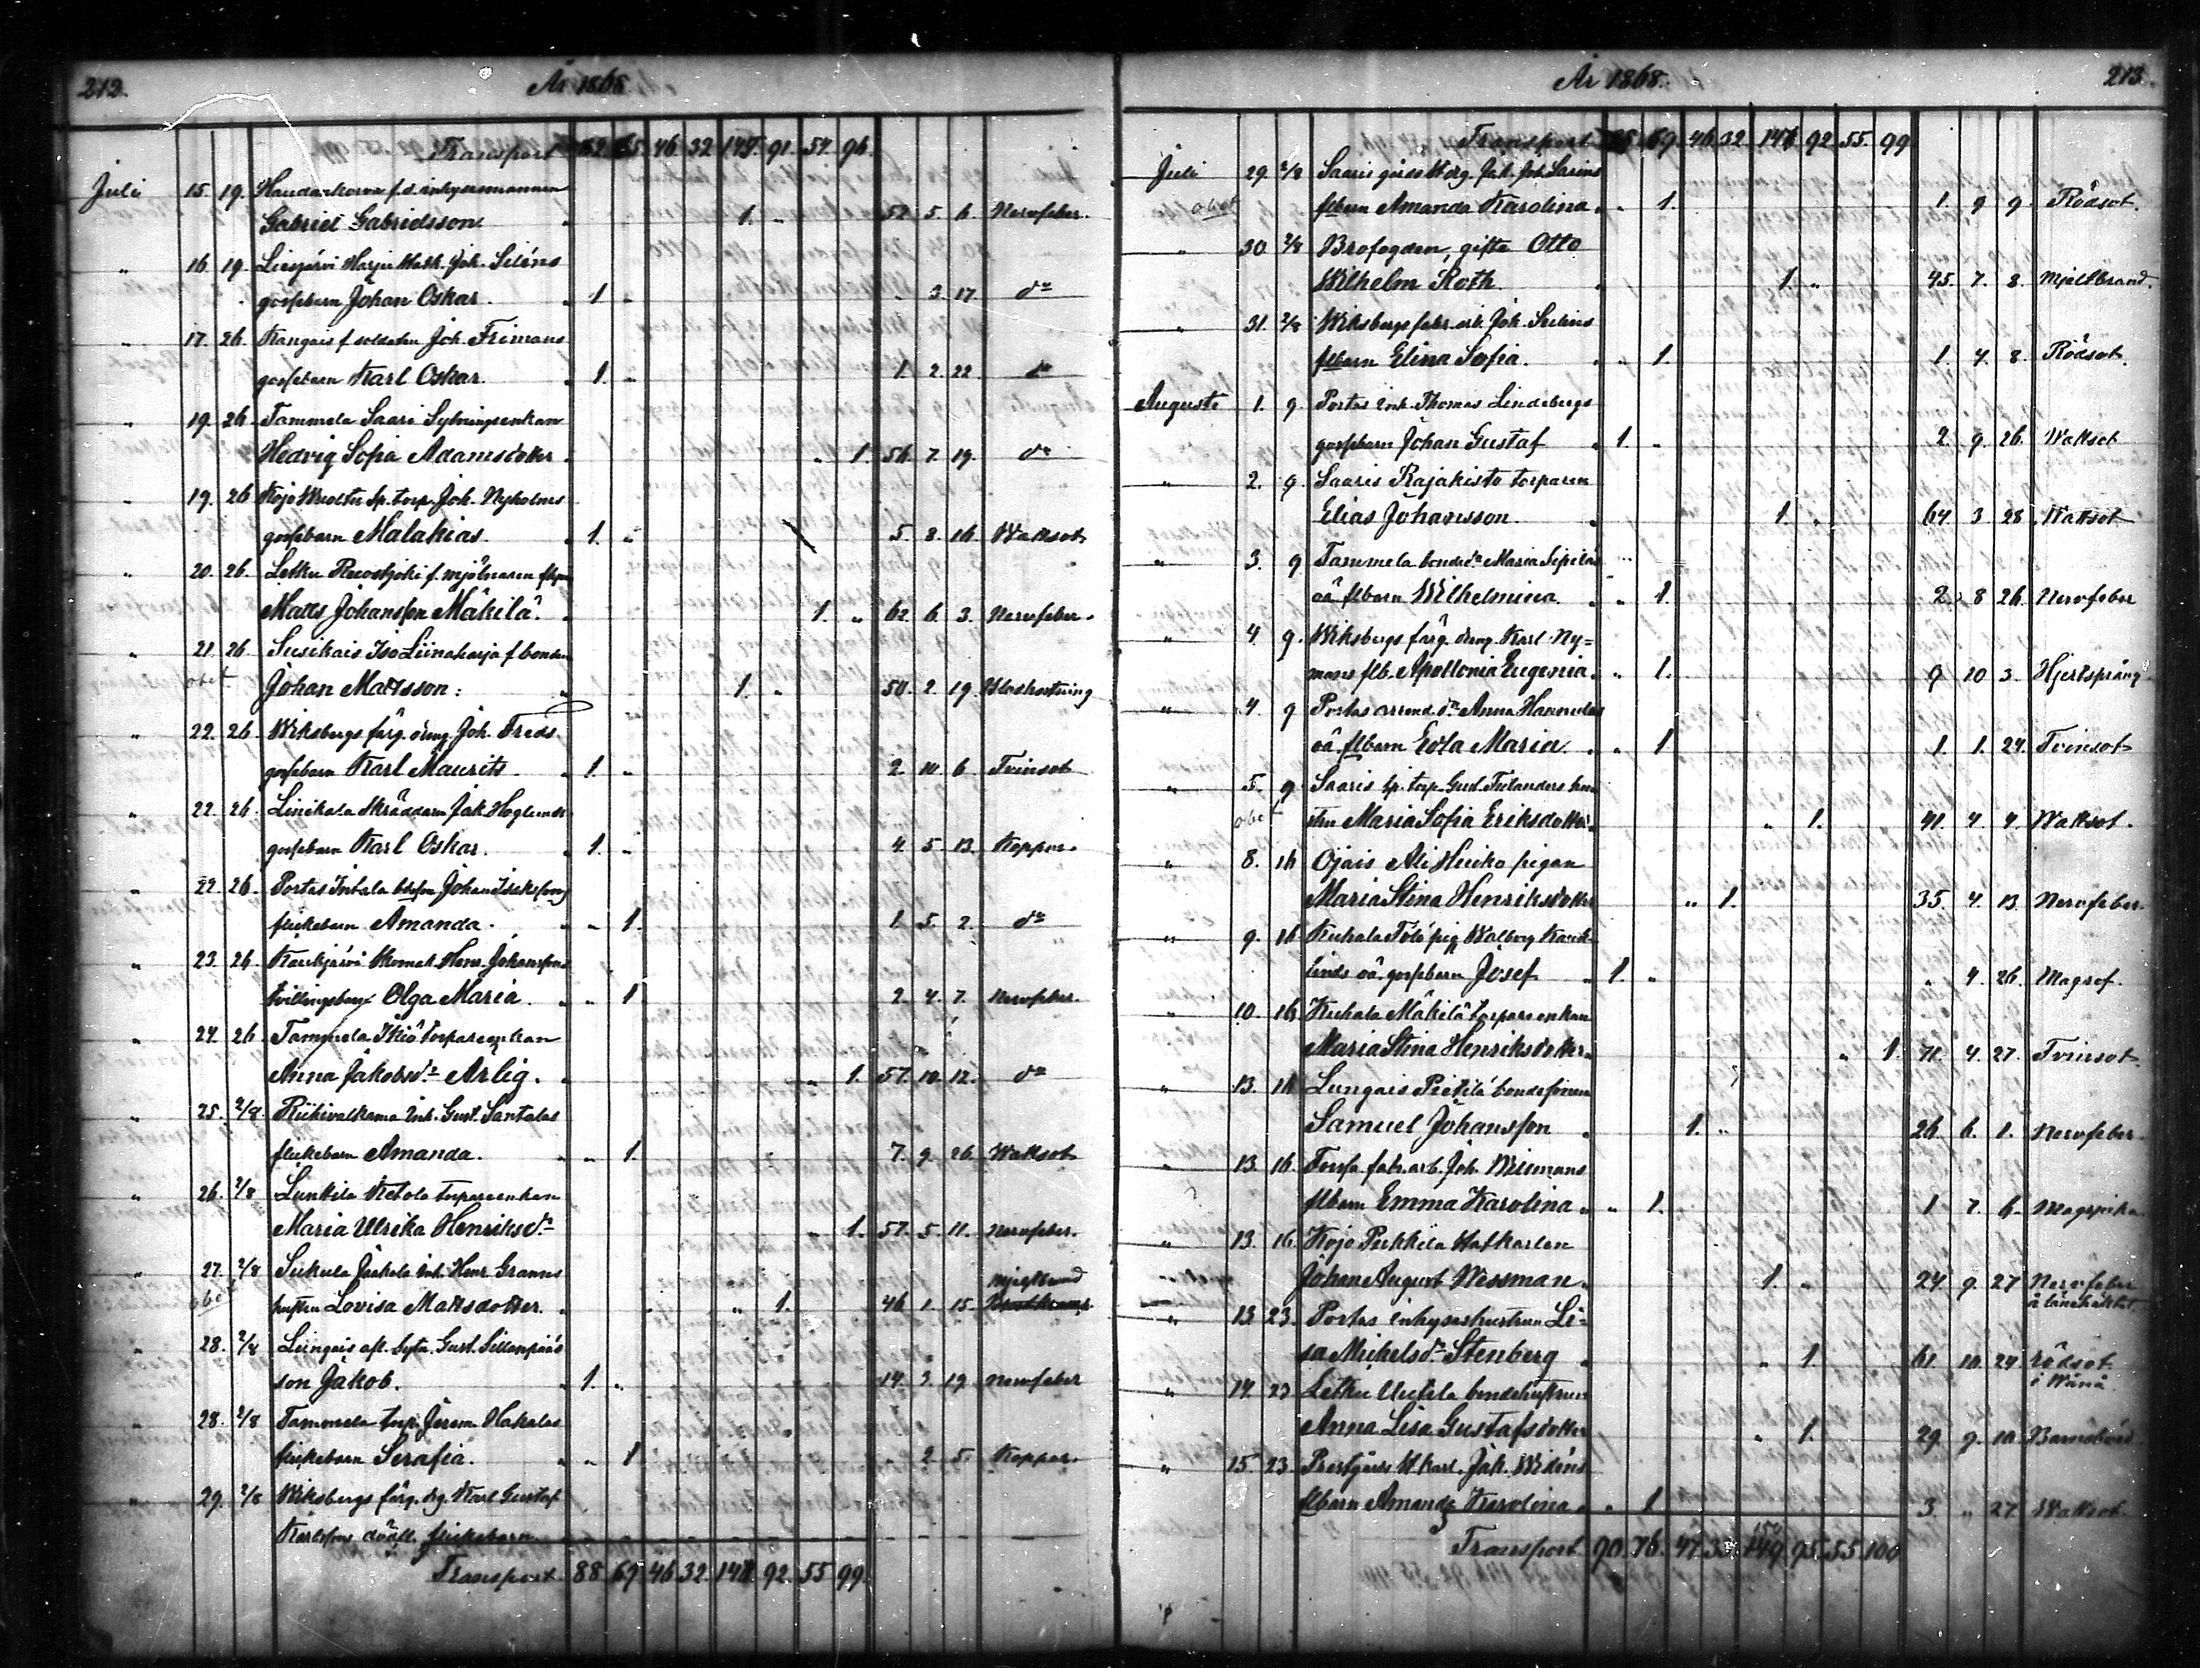 212. År 1868.
Transport 82 65 46 32 147 91. 54. 96.
Juli 15. 19. Haudankorva f.d. inhysesmannen
Gabriel Gabrielsson 1. " 52. 5. 6. Nervfeber.
" 16. 19. Liesjärvi Harju Joh. Siléns
gossebarn Johan Oskar. 1. " " 3. 17. do
" 17. 26. Kangais f soldaten Joh. Frimans
gossebarn Karl Oskar. 1. " 1. 2. 22. do
" 19. 26. Tammela Saari Sytningsenkan
Hedvig Sofia Adamsdotter " 1. 56. 7. 19. do
" 19. 26 Kojo sp. torp. Joh. Nyholms
gossebarn Malakias. 1. " 5. 8. 16. Wattsot
" 20. 26. Letku f. mjölnaren
Matts Johansson Mäkilä. 1. " 62. 6. 3. Nervfeber.
" 21. 26. Susikais Iso Liinaharja f bonden
obet Johan Mattsson. 1. " 50. 2. 19. Blodhostning
" 22. 26 Wiksbergs färg. dräng. Joh. Freds
gossebarn Karl Maurits 1. " 2. 10. 6 Tvinsot
" 22. 26. Linikala Skräddarn Jak. Hoglunds
gossebarn Karl Oskar. 1. " 4. 5. 13. Koppor.
" 22. 26. Portas Intala Johan Isakssons
flickebarn Amanda. " 1. 1. 5. 2. do
" 23. 26. Kaukjärvi Skomak. Henr. Johanssons
tvillingsbarn Olga Maria. " 1 2. 4. 7. Nervfeber.
" 24. 26 Tammela torpareenkan
Anna Jakobsdr Arlig. " 1. 57. 10. 12. do
" 25. 2/8. Riihivalkama Inh. Gust. Santalas
flickebarn Amanda. " 1. 7. 9. 26. Wattsot
" 26. 2/8 Lunkila Ketola torpareenkan
Maria Ulrika Henriksdr " 1. 57. 5. 11. Nervfeber.
" 27. 2/8 Sukula Jaakola inh. Henr. Granns
obet hustru Lovisa Mattsdotter. " 1. 46. 1. 15. Mjeltbrand
" 28. 2/8 Liingais aft. Gust. Sillanpääs
son Jakob. 1. " 14. 3. 19 Nervfeber
" 28. 2/8 Tammela torp. Jerem. Hakalas
flickebarn Serafia. " 1 " 2. 5. Koppor.
" 29. 2/8 Wiksbergs färg. dg. Karl Gustaf
Karlssons flickebarn
Transport 88 69 46 32. 148 92. 55 99.
År 1868. 213.
Transport 88 69. 46 32. 148 92. 55. 99
Juli 29. 2/8 Saaris gårds Jak. Joh. Sarins
obet flbarn Amanda Karolina. " 1. 1. 9 9. Rödsot.
" 30 2/8 Brofogden, gifte Otto
Wilhelm Roth. 1. " 45. 7. 8. Mjeltbrand.
" 31. 2/8 Wiksbergs fabr. arb. Joh. Seléns
flbarn Elina Sofia. " 1. 1. 4. 8. Rödsot.
Augusti 1. 9 Portas Inh. Thomas Lindebergs
gossebarn Johan Gustaf 1. " 2. 9. 26. Wattsot
" 2. 9. Saaris Rajakisto torparen
Elias Johansson. 1. " 64 3 28. Wattsot
" 3. 9 Tammela bondedr Maria Sipiläs
oä flbarn Wilhelmina. " 1. 2. 8 26. Nervfeber
" 4 9. Wiksbergs färg. dräng. Karl Ny=
mans flb. Apollonia Eugenia. " 1. 9 10 3. Hjertsprång.
" 4. 9 Portas arrend. dr Anna Hannulas
oä flbarn Eva Maria. " 1 1. 1. 24. Tvinsot
" 5. 9 Saaris sp. torp. Gust. Finlanders hus
obet tru Maria Sofia Eriksdotter. " 1. 41. 4. 4. Wattsot.
" 8. 16 Ojais Ali Heiko pigan
Maria Stina Henriksdotter " 1. 35. 4. 13. Nervfeber.
" 9. 16 Kuhala pig. Walborg
linds oä. gossebarn Josef 1. " " 4 26. Magref.
" 10. 16. Kuhala Mäkilä torpareenkan
Maria Stina Henriksdotter " 1 71. 4. 27. Tvinsot
" 13. 16 Lungais Pietilä bondesonen
Samuel Johansson 1. " 26 6. 1. Nervfeber.
" 13. 16. Forssa fabr. arb. Joh. Wiimans
flbarn Emma Karolina. " 1. 1 7. 6. Magsjuka.
" 13. 16. Kojo Pirkkilä Statkarlen
Johan August Wessman. 1. " 24. 9. 27 Nervfeber
å länehäktet.
" 13 23. Portas inhyseshustrun Li=
sa Michelsdr Stenberg " 1. 61. 10. 24 rödsot
i Wånå
" 14. 23 Letku Uutela bondehustrun
Anna Lisa Gustafsdotter " 1. 29. 9. 10. Barnsbörd.
" 15. 23. Prestgårds St.karl. Jak. Widéns
flbarn Amanda Karolina. " 1 3. " 27 Wattsot.
Transport 90. 76. 47. 33. 150 149 95. 55. 100